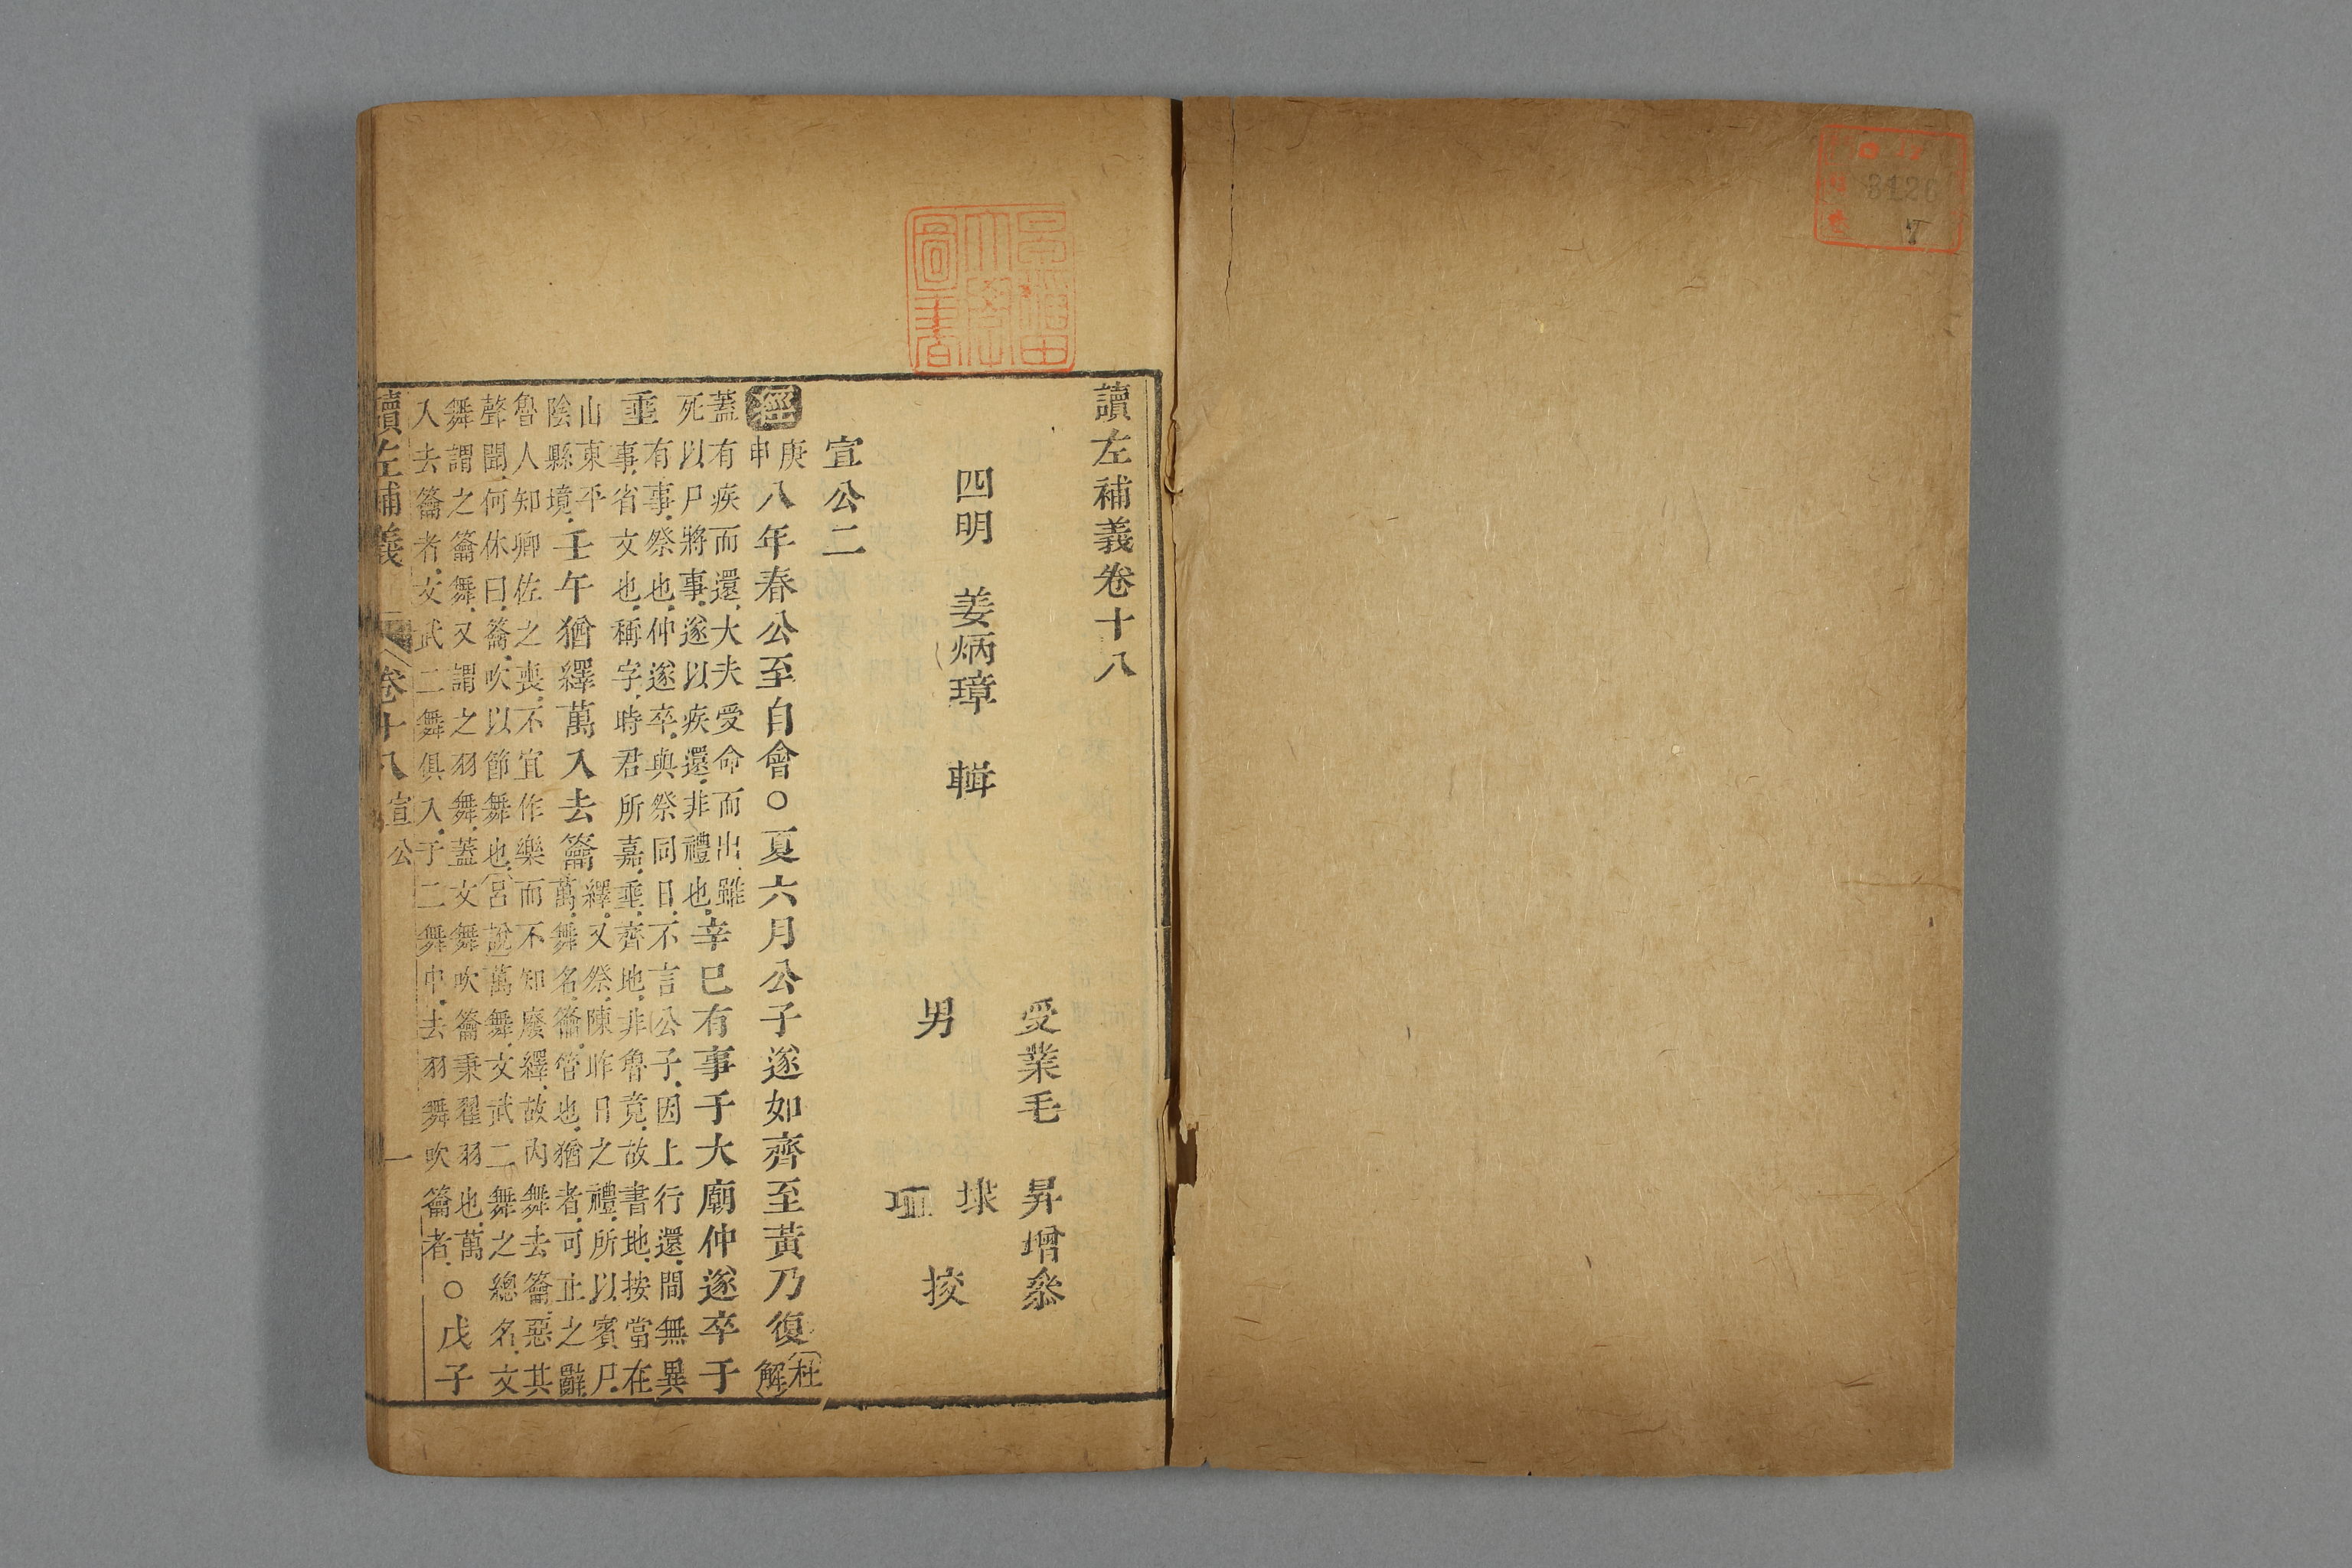 早稲田大學圖書
3126
7
讀左補義卷十八
受業毛 昇增叅
四明 姜炳璋 輯
埰
男 挍
宣公二
經庚申八年春公至自會○夏六月公子遂如齊至黃乃復杜解
蓋有疾而還大夫受命而出雖死以尸將事遂以疾還非禮也辛巳有事于大廟仲遂卒于
垂有事祭也仲遂卒與祭同日不言公子因上行還間無異事省文也稱字時君所嘉垂齊地非魯竟故書地按當在
山東平陰縣境壬午猶繹萬入去籥繹又祭陳昨日之禮所以賓尸萬舞名籥管也猶者可止之辭
魯人知卿佐之喪不宜作樂而不知廢繹故內舞去籥惡其聲聞何休曰籥吹以節舞也呂說萬舞文武二舞之總名文
舞謂之籥舞又謂之羽舞蓋文舞吹籥秉翟羽也萬入去籥者文武二舞俱入于二舞中去羽舞吹籥者○戊子
讀左補義 卷十八 宣公 一